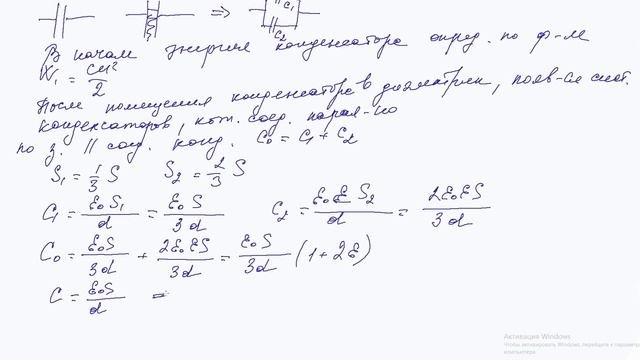 ⇒ C₁
C₂
В начале энергия конденсатора опред. по ф-ле
W₁ = CU²/2
После помещения конденсатора в диэлектрик, появ-ся сист.
конденсаторов, кот. соед. парал-но
по з. // соед. конд. C₀ = C₁ + C₂
S₁ = 1/3 S S₂ = 2/3 S
C₁ = ε₀S₁/d = ε₀S/3d C₂ = ε₀εS₂/d = 2ε₀εS/3d
C₀ = ε₀S/3d + 2ε₀εS/3d = ε₀S/3d (1+2ε)
C = ε₀S/d =
Активация Windows
Чтобы активировать Windows, перейдите к параметрам
компьютера